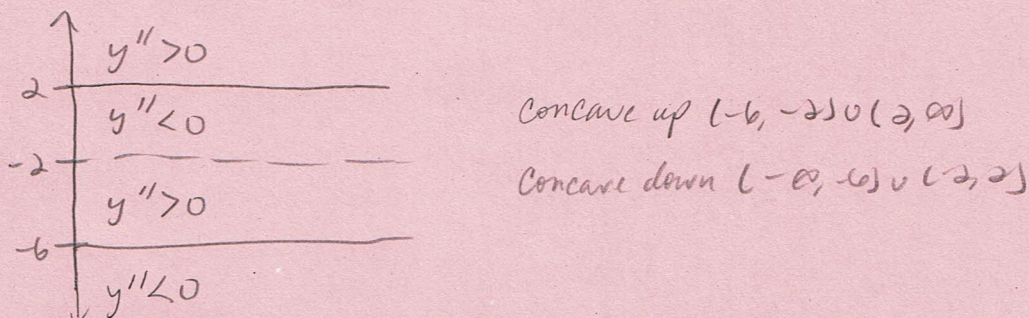 y''>0
2
y''<0
-2
y''>0
-6
y''<0
concave up (-6, -2) ∪ (2, ∞)
concave down (-∞, -6) ∪ (-2, 2)